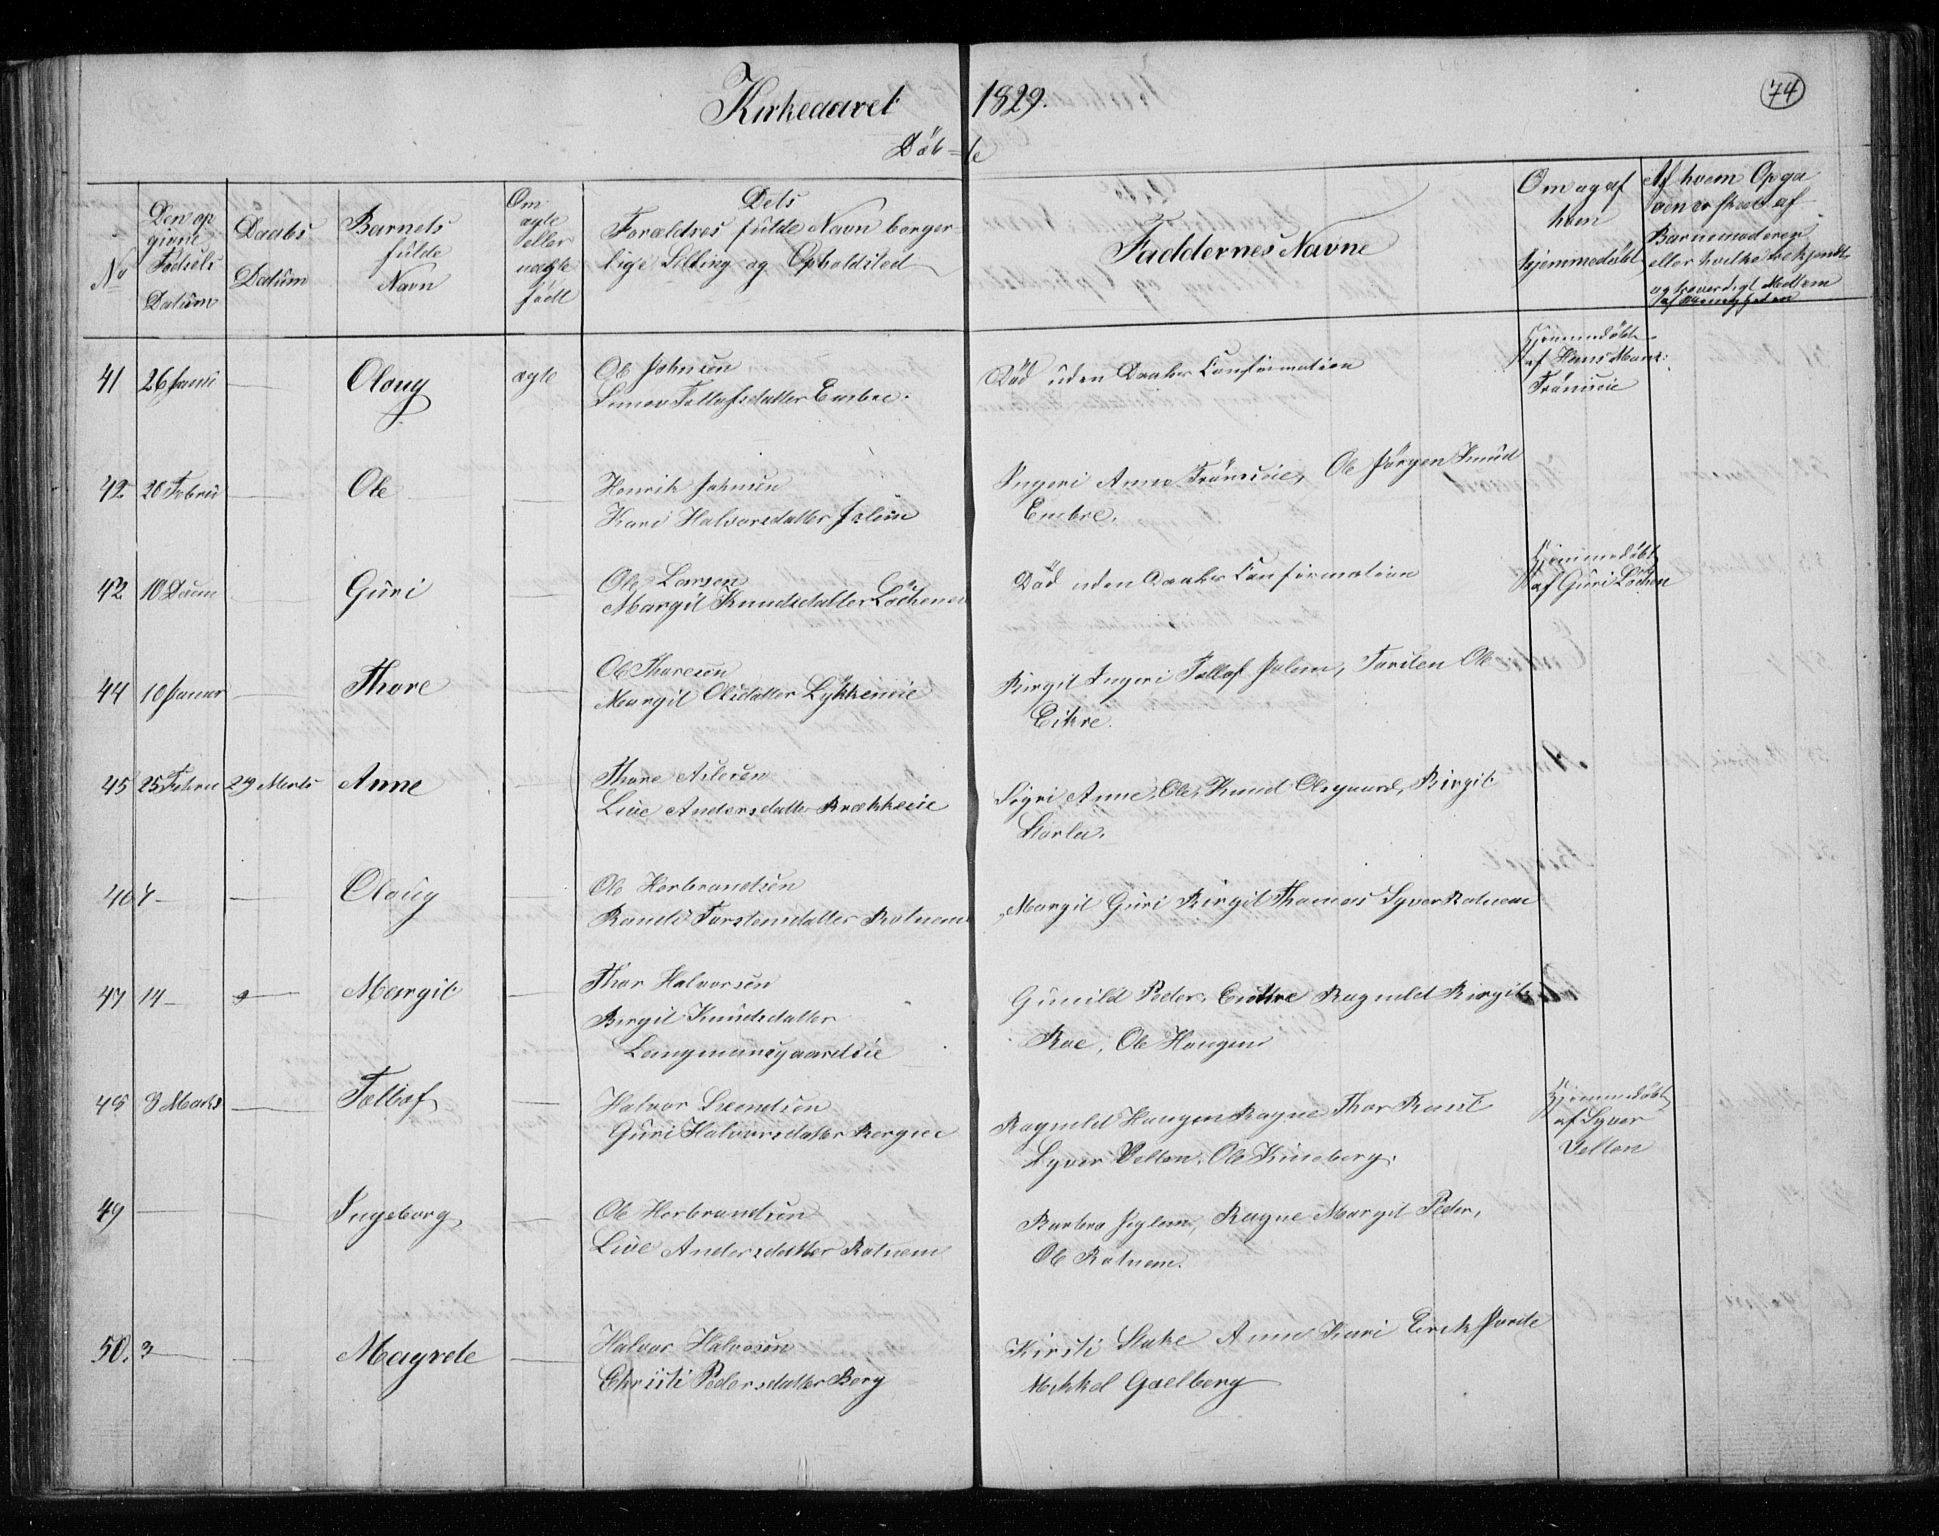 Kirkeaaret 1829.
74
Döb=te
No
Den op
givne
Fødsels
Datum
Daabs
Datum
Barnets
fulde
Navn
Om
ægte
eller
uægte
født
Dets
Forældres fulde Navn borger-
lige Stilling og Opholdsted
Faddernes Navne
Om og af
hvem
hjemmedøbt
Af hvem Opga
ven er skeet af
Barnemoderen
eller hvilke bekjendt
og troverdigt Medlem
af Menigheden
41 26 Janu — Oloug ægte Ole Johnsen
Tollefsdatter Embre.
Död uden Daabs Confirmation
Hjemmedöbt
af Hans Mont:
Trömseie
42 20 Febru — Ole — Henrik Johnsen
Kari Halvorsdatter
Ingeri Anne Trömseie, Ole Jörgen Knud
Embre.
42 10 Decem — Guri — Ole Larsen
Margit Knudsdatter Löchenei
Död uden Daabs Confirmation
Hjemmedöbt
af Guri Löchen
44 10 Januar — Thore Ole Thoresen
Margit Olsdatter Lykkeneie
Birgit Ingeri Tollef Torsten Ole
Eikre.
45 25 Febru 29 Marts Anne — Thore Aslesen
Live Andersdatter Brækkeeie
Sigri Anne, Ole, Knud Olsgaard, Birgit
Storla.
46 4 — — Oloug — Ole Herbrandsen
Randi Torstensdatter Rotnem
Margit Guri Birgit Thomas Syver Rotnem
47 14 — — Margit — Thor Halvorsen
Birgit Knudsdatter
Langmansgaardeie
Gunild Peder, Endre Ragnild Birgit
Roe, Ole Haugen
48 9 Marts — Tollef — Halvor Svendsen
Guri Halvorsdatter Bergeie
Ragnild Haugen Ragne Thor
Syver Velten, Ole Kineberg.
Hjemmedöbt
af Syver
Velten
49 — — Ingeborg — Ole Herbrandsen
Live Andersdatter Rotnem
Barbro Ragne Margit Peder,
Ole Rotnem.
50. 3 — — Magrete — Halvor Halvosen
Christi Pedersdatter Berg
Kirsti Stake Anne Kari Erik
Mikkel Goelberg